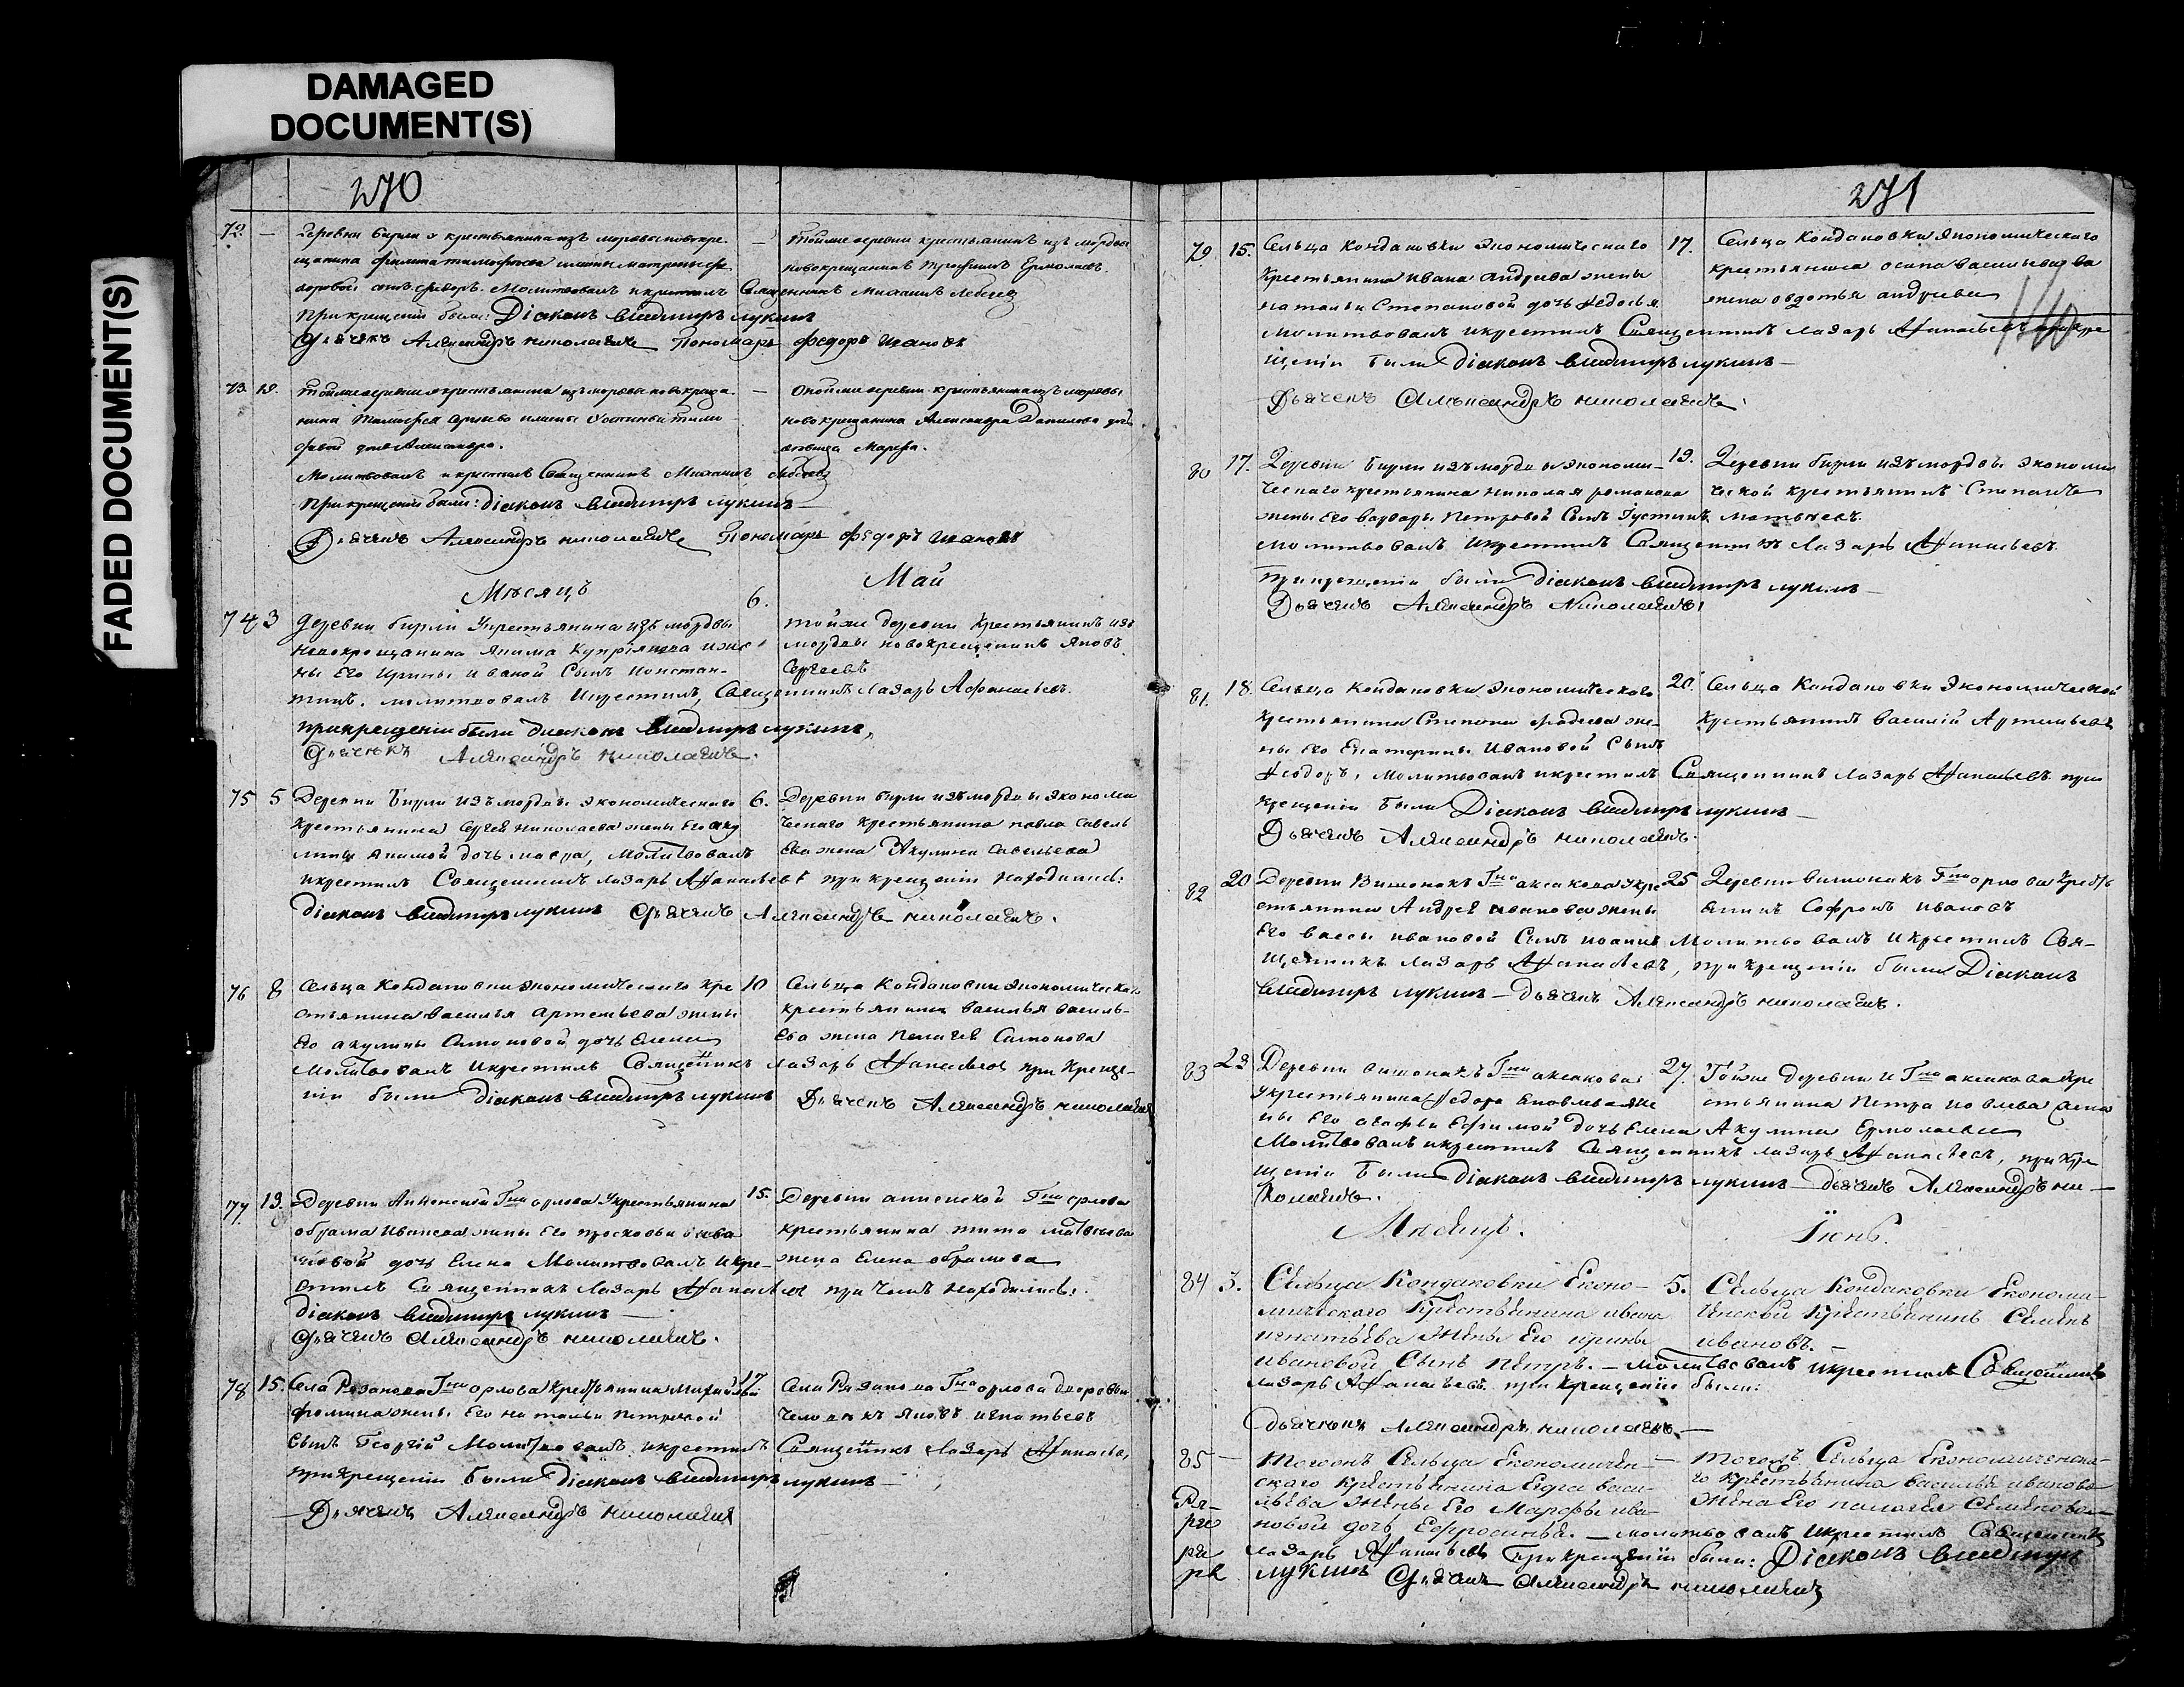 DAMAGED
DOCUMENT(S)
FADED DOCUMENT(S)
270
72. — Деревни Бирли у крестьянина изъ мордвы новокре-
щанина Филипа Тимофеева
Молитвовалъ и крестилъ Священникъ Михаилъ Лебедев
При крещеніи были: Діаконъ Владимиръ Лукинъ
Дьячекъ Александръ Николаевъ Пономарь Федоръ Ивановъ
— Тойже деревни крестьянинъ изъ мордвы
новокрещанинъ Трофимъ Ермолаевъ.
73. 19. Тойже деревни у крестьянина изъ мордвы новокреща-
нина
фьевой дочь Александра.
Молитвовалъ и крестилъ Священникъ Михаилъ Лебедев
При крещеніи были: Діаконъ Владимиръ Лукинъ —
Дьячекъ Александръ Николаевъ Пономарь Федоръ Ивановъ
— Оной же деревни крестьянина изъ мордвы
новокрещанина Александра Данилова дочь
девица Марфа.
Мѣсяцъ Май
74 3 Деревни Бирли у крестьянина изъ мордвы
новокрещанина Якима Купріянова и же-
ны Его Ирины Ивановой Сынъ Констан-
тинъ. молитвовалъ и крестилъ, Священникъ Лазарь Афанасьевъ.
при крещеніи были диаконъ Владимиръ Лукинъ,
Дьячекъ Александръ Николаевъ.
6. тойже деревни крестьянинъ изъ
мордвы новокрещенинъ Яковъ
Сергеевъ
75 5 Деревни Бирли изъ мордвы экономическаго
крестьянина Сергея Николаева жены Его Аку-
лины Якимой дочь Мавра, молитвовалъ
и крестилъ Священникъ Лазарь Афанасьевъ при крещеніи находились:
діаконъ Владимиръ Лукинъ Дьячекъ Александръ Николаевъ.
6. Деревни Бирли изъ мордвы экономи
ческаго крестьянина Павла Савель
Ева жена Акулина Савельева
76 8 Сельца Кондаковки экономическаго кре
стьянина Василья Артемьева жены
Его Акулины Симоновой дочь Елена
Молитвовалъ и крестилъ Священникъ Лазарь Афанасьевъ при креще-
ніи были діаконъ Владимиръ Лукинъ Дьячекъ Александръ Николаевъ
10 Сельца Кондаковки экономическаго
крестьянина Василья Василь-
Ева жена Пелагея Симонова
77. 13. Деревни Анненской Гна Орлова у крестьянина
Обрама Иванова жены Его Просковьи
дочь Елена Молитвовалъ и кре-
стилъ Священникъ Лазарь Афанасьевъ при чемъ находились:
діаконъ Владимиръ Лукинъ —
Дьячекъ Александръ Николаевъ.
15. Деревни Анненской Гна Орлова
крестьянина Тита Матвѣева
жена Елена Обрамова
78 15. Села Рязанова Гна Орлова крестьянина Михайлы
Фомина жены Его Натальи Петровой
Сынъ Георгій Молитвовалъ и крестилъ Священникъ Лазарь Афанасьевъ,
при крещеніи были діаконъ Владимиръ Лукинъ —
— Дьячекъ Александръ Николаевъ
17 Села Рязанова Гна Орлова дворовый
человѣкъ Яковъ Игнатьевъ
271
79. 15. Сельца Кондаковки экономическаго
крестьянина Ивана Андреева жены
Натальи Степановой дочь Федосья
молитвовалъ и крестилъ Священникъ Лазарь Афанасьевъ при кре
щеніи были Діаконъ Владимиръ Лукинъ —
Дьячекъ Александръ Николаевъ.
17. Сельца Кондаковки экономическаго
крестьянина Осипа Васильева
жена Авдотья Андреева
80 17. Деревни Бирли изъ мордвы экономи-
ческаго крестьянина Николая Романова
жены Его Варвары Петровой Сынъ Густинъ
молитвовалъ и крестилъ Священникъ Лазарь Афанасьевъ.
при крещеніи были Діаконъ Владимиръ Лукинъ —
Дьячекъ Александръ Николаевъ
19. Деревни Бирли изъ мордвы экономи
ческой крестьянинъ Степанъ
Матвѣевъ.
81. 18. Сельца Кондаковки экономическаго
крестьянина Степана Фадеева же-
ны Его Екатерины Ивановой Сынъ
Феодоръ, молитвовалъ и крестилъ Священникъ Лазарь Афанасьевъ при
крещеніи были Діаконъ Владимиръ Лукинъ —
Дьячекъ Александръ Николаевъ.
20. Сельца Кондаковки экономической
крестьянинъ Василій Артемьевъ
82 20 Деревни Вишонакъ Гна Аксакова у кре
стьянина Андрея Иванова жены
Его Вассы Ивановой Сынъ Иоаннъ Молитвовалъ и крестилъ Свя-
щенникъ Лазарь Афанасьевъ, при крещеніи были Діаконъ
Владимиръ Лукинъ — Дьячекъ Александръ Николаевъ.
25 Деревни Вишонакъ Гна Орлова крестья
янинъ Софронъ Ивановъ
83 23 Деревни Вишонакъ Гна Аксакова
у крестьянина Федора Яковлева же
ны Его Агафьи Ефимой дочь Елена
Молитвовалъ и крестилъ Священникъ Лазарь Афанасьевъ, при кре
щеніи были Діаконъ Владимиръ Лукинъ — Дьячекъ Александръ Ни—
колаевъ.
27. Тойже деревни и Гна Аксакова кре
стьянина Петра жена
Акулина Ермолаева
Мѣсяцъ. Іюнь.
84 3. Сельца Кондаковки Еконо-
мическаго крестьянина Ивана
Игнатьева жены Его Ирины
Ивановой Сынъ Петръ. — молитвовалъ и крестилъ Священникъ
Лазарь Афанасьевъ при крещеніи были:
Дьячекъ Александръ Николаевъ —
5. Сельца Кондаковки Економи-
ческой крестьянинъ Семенъ
Ивановъ. —
85 — Тогожъ Сельца Економичес-
скаго крестьянина Егора Васи-
льева жены Его Марфы Ива-
новой дочь Ефросинья. — молитвовалъ и крестилъ Священникъ
Лазарь Афанасьевъ При крещеніи были: Діаконъ Владимиръ
Лукинъ Дьячекъ Александръ Николаевъ
— Тогожъ Сельца Економическа-
го крестьянина Василья Иванова
жена Его Пелагея Семенова —